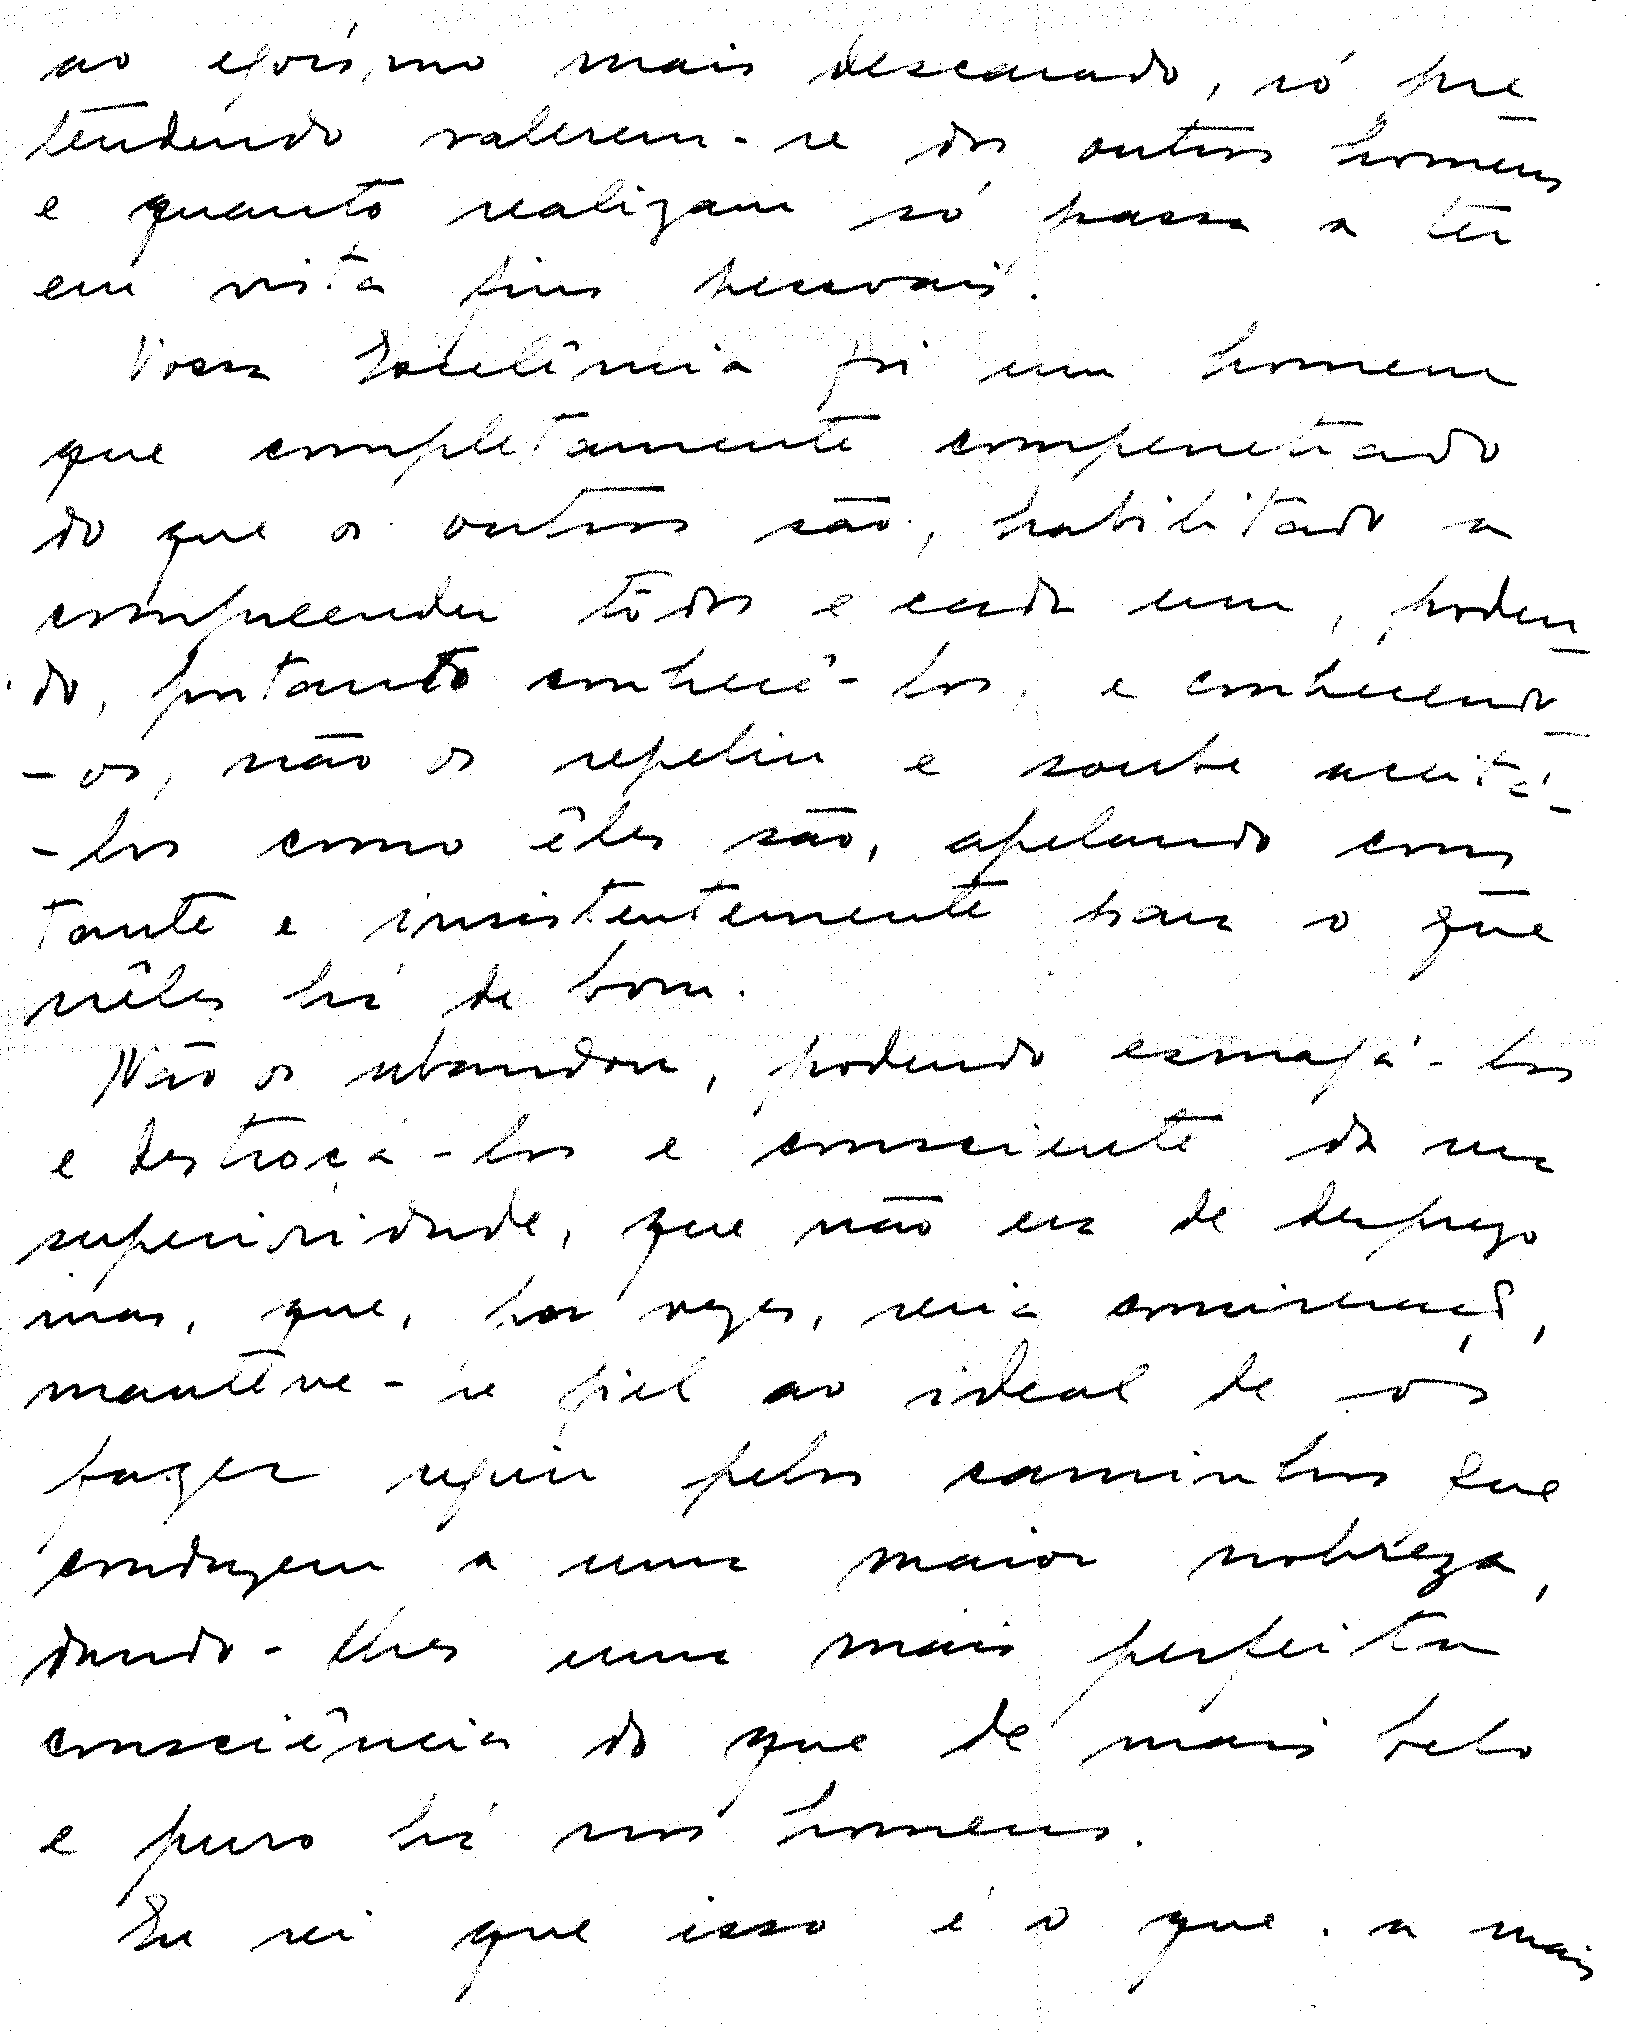 ao egoísmo mais descarado, só pre-
tendendo valerem-se dos outros homens
e quanto realizam só passa a ter
em vista fins pessoais.
Vossa Excelência foi um homem
que completamente compenetrado
do que os outros são, habilitado a
compreender todos e cada um, poden-
do, portanto conhecê-los, e conhecendo-
-os, não os repeliu e soube aceitá-
-los como êles são, apelando cons
tante e insistentemente para o que
nêles há de bom.
Não os abandonou, podendo esmagá-los
e destroçá-los e consciente da sua
superioridade, que não era de desprezo
mas, que, por vezes, seria comiseração,
manteve-se fiel ao ideal de os
fazer seguir pelos caminhos que
conduzem a uma maior nobreza,
dando-lhes uma mais perfeita
consciência do que de mais belo
e puro há nos homens.
Eu sei que isso é o que a mais